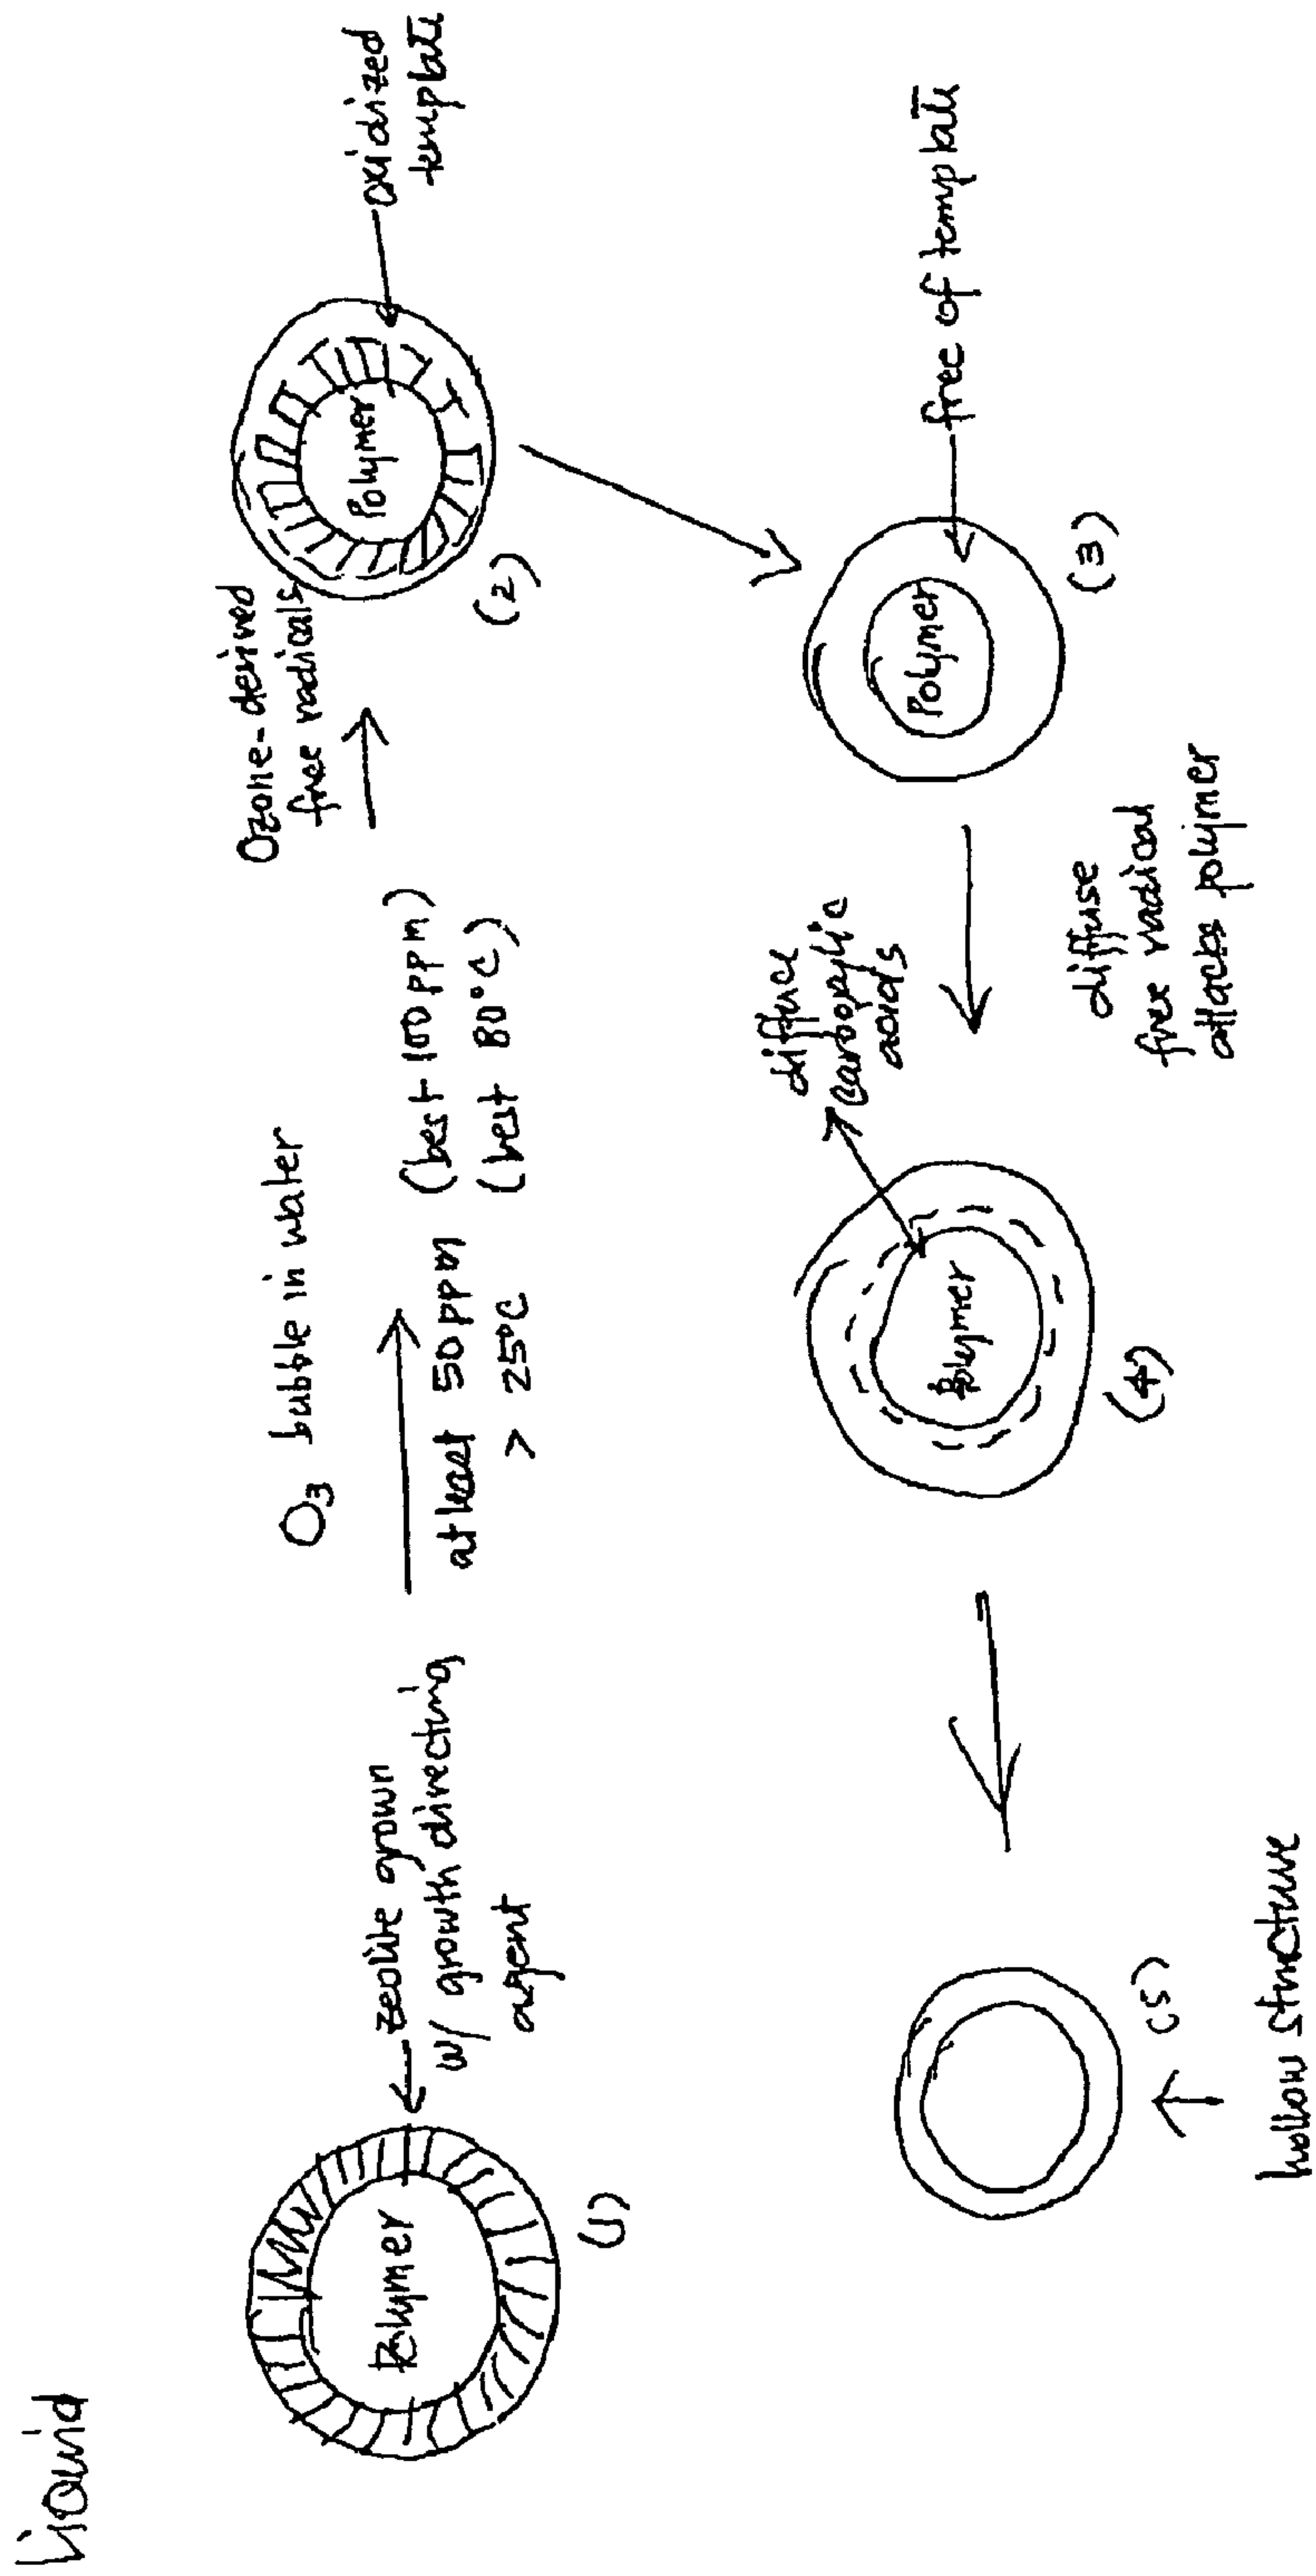 Liquid
Polymer
(1)
zeolite grown
w/ growth directing
agent
O3 bubble in water
at least 50 ppm (best 100 ppm)
> 25°C (best 80°C)
Ozone-derived
free radicals
Polymer
(2)
oxidized
template
Polymer
(3)
free of template
diffuse
free radical
attacks polymer
Polymer
(4)
diffuse
carboxylic
acids
(5)
hollow structure